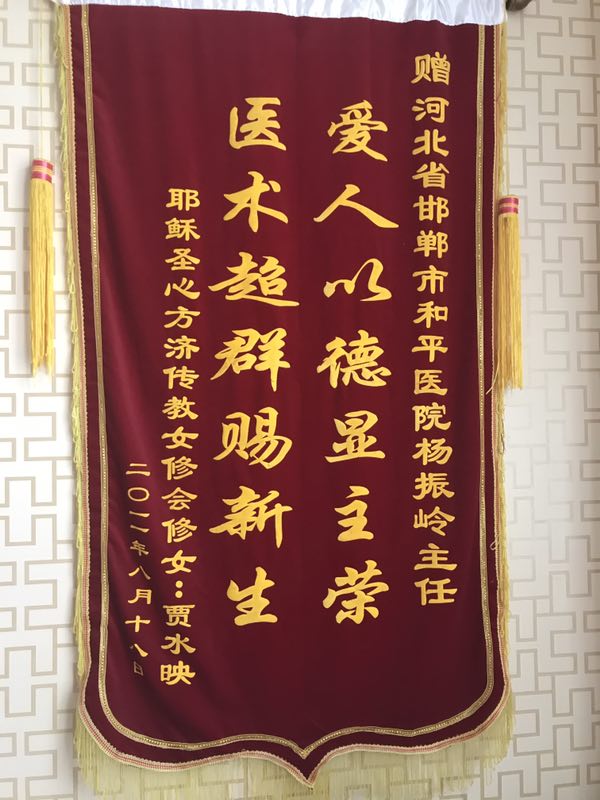 赠河北省邯郸市和平医院杨振岭主任
爱人以德显主荣
医术超群赐新生
耶稣圣心方济传教女修会修女：贾水映
二〇一一年八月十八日